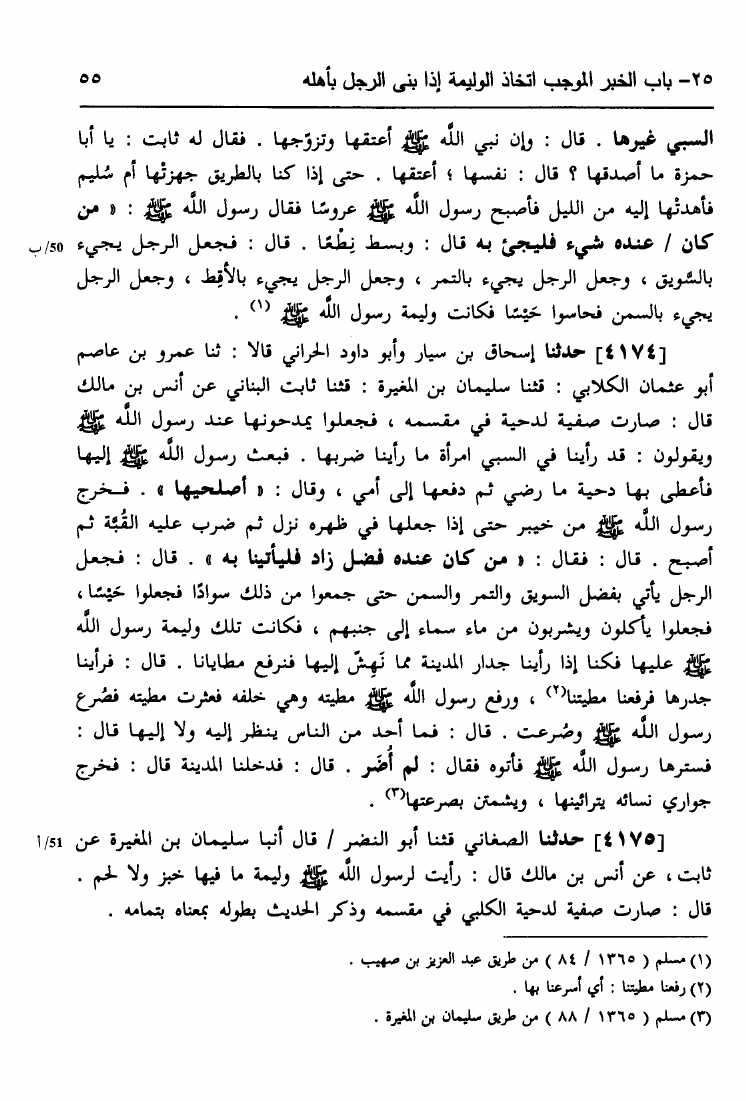 ٢٥- باب الخبر الموجب اتخاذ الوليمة إذا بنى الرجل بأهله ٥٥
السبي غيرها . قال : وإن نبي اللَّه ﷺ أعتقها وتزوّجها . فقال له ثابت : يا أبا
حمزة ما أصدقها ؟ قال : نفسها ؛ أعتقها . حتى إذا كنا بالطريق جهزتْها أم سُليم
فأهدتْها إليه من الليل فأصبح رسول اللَّه ﷺ عروسًا فقال رسول اللَّه ﷺ : « من
كان / عنده شيء فليجئ به قال : وبسط نِطْعًا . قال : فجعل الرجل يجيء 50/ب
بالسَّويق ، وجعل الرجل يجيء بالتمر ، وجعل الرجل يجيء بالأقِط ، وجعل الرجل
يجيء بالسمن فحاسوا حَيْسًا فكانت وليمة رسول اللَّه ﷺ (١) .
[٤١٧٤] حدثنا إسحاق بن سيار وأبو داود الحراني قالا : ثنا عمرو بن عاصم
أبو عثمان الكلابي : قثنا سليمان بن المغيرة : قثنا ثابت البناني عن أنس بن مالك
قال : صارت صفية لدحية في مقسمه ، فجعلوا يمدحونها عند رسول اللَّه ﷺ
ويقولون : قد رأينا في السبي امرأة ما رأينا ضربها . فبعث رسول اللَّه ﷺ إليها
فأعطى بها دحية ما رضي ثم دفعها إلى أمي ، وقال : « أصلحيها » . فخرج
رسول اللَّه ﷺ من خيبر حتى إذا جعلها في ظهره نزل ثم ضرب عليه القُبَّة ثم
أصبح . قال : فقال : « من كان عنده فضل زاد فليأتينا به » . قال : فجعل
الرجل يأتي بفضل السويق والتمر والسمن حتى جمعوا من ذلك سوادًا فجعلوا حَيْسًا ،
فجعلوا يأكلون ويشربون من ماء سماء إلى جنبهم ، فكانت تلك وليمة رسول اللَّه
ﷺ عليها فكنا إذا رأينا جدار المدينة مما نَهِشّ إليها فنرفع مطايانا . قال : فرأينا
جدرها فرفعنا مطيتنا(٢) ، ورفع رسول اللَّه ﷺ مطيته وهي خلفه فعثرت مطيته فصُرع
رسول اللَّه ﷺ وصُرعت . قال : فما أحد من الناس ينظر إليه ولا إليها قال :
فسترها رسول اللَّه ﷺ فأتوه فقال : لم أُضَر . قال : فدخلنا المدينة قال : فخرج
جواري نسائه يترائينها ، ويشمتن بصرعتها(٣) .
[٤١٧٥] حدثنا الصغاني قثنا أبو النضر / قال أنبا سليمان بن المغيرة عن 51/أ
ثابت ، عن أنس بن مالك قال : رأيت لرسول اللَّه ﷺ وليمة ما فيها خبز ولا لحم .
قال : صارت صفية لدحية الكلبي في مقسمه وذكر الحديث بطوله بمعناه بتمامه .
(١) مسلم ( ١٣٦٥ / ٨٤ ) من طريق عبد العزيز بن صهيب .
(٢) رفعنا مطيتنا : أي أسرعنا بها .
(٣) مسلم ( ١٣٦٥ / ٨٨ ) من طريق سليمان بن المغيرة .